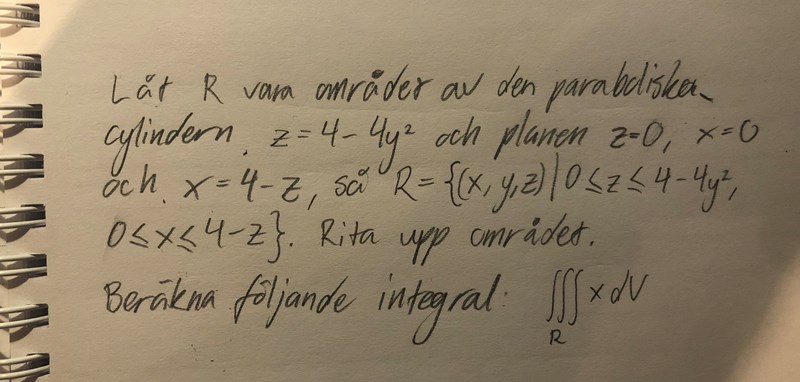 Låt R vara området av den paraboliska
cylindern z=4-4y² och planen z=0, x=0
och x=4-z, så R={(x,y,z)|0≤z≤4-4y²,
0≤x≤4-z}. Rita upp området.
Beräkna följande integral: ∭ x dV
R